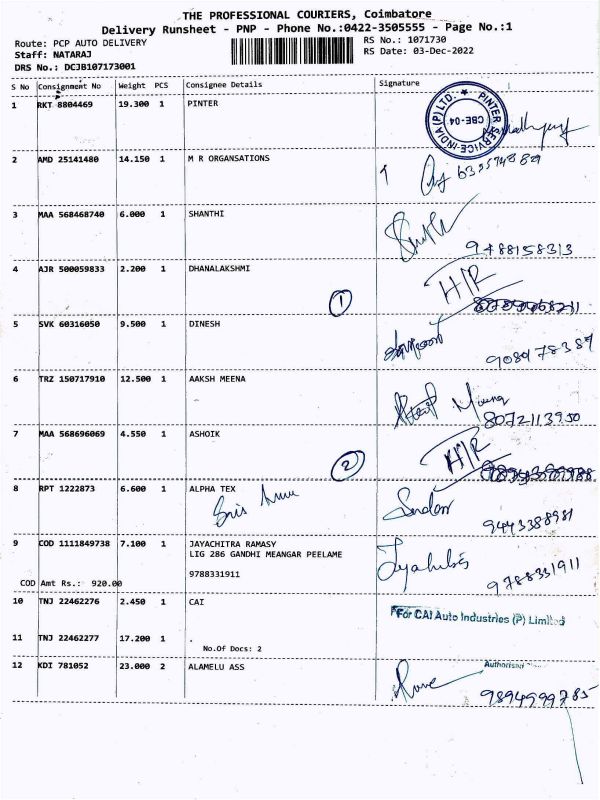 THE PROFESSIONAL COURIERS, Coimbatore
Delivery Runsheet - PNP - Phone No.:0422-3505555 - Page No.:1
Route: PCP AUTO DELIVERY
Staff: NATARAJ
DRS No.: DCJB107173001
RS No.: 1071730
RS Date: 03-Dec-2022
S No Consignment No Weight PCS Consignee Details Signature
1 RKT 8804469 19.300 1 PINTER
PINTER SERVICE INDIA (P) LTD. CBE-04
2 AMD 25141480 14.150 1 M R ORGANSATIONS
3 MAA 568468740 6.000 1 SHANTHI
9488158313
4 AJR 500059833 2.200 1 DHANALAKSHMI
1 H/R
5 SVK 60316050 9.500 1 DINESH
9080478384
6 TRZ 150717910 12.500 1 AAKSH MEENA
Meena
8072113950
7 MAA 568696069 4.550 1 ASHOIK
2 H/R
8 RPT 1222873 6.600 1 ALPHA TEX
9443388981
9 COD 1111849738 7.100 1 JAYACHITRA RAMASY
LIG 286 GANDHI MEANGAR PEELAME
9788331911
9788331911
COD Amt Rs.: 920.00
10 TNJ 22462276 2.450 1 CAI
For CAI Auto Industries (P) Limited
11 TNJ 22462277 17.200 1 .
No.Of Docs: 2
12 KDI 781052 23.000 2 ALAMELU ASS
Authorised
9894999785